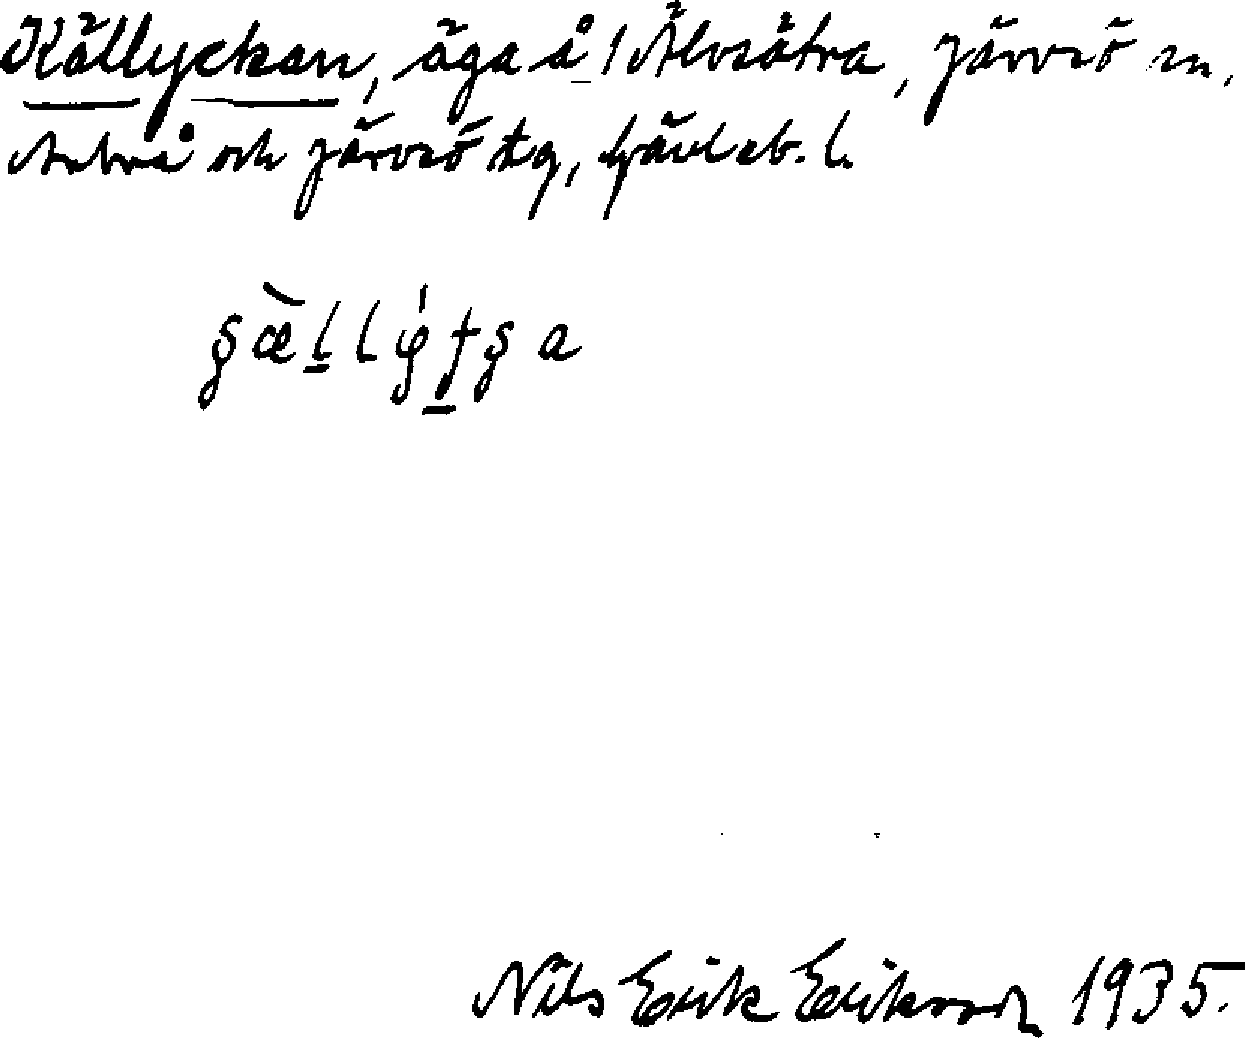 Källyckan, äga å 1 Älvsätra, Järvsö sn,
Arbrå och Järvsö tg, Gävleb. l.
Nils Erik Eriksson 1935.